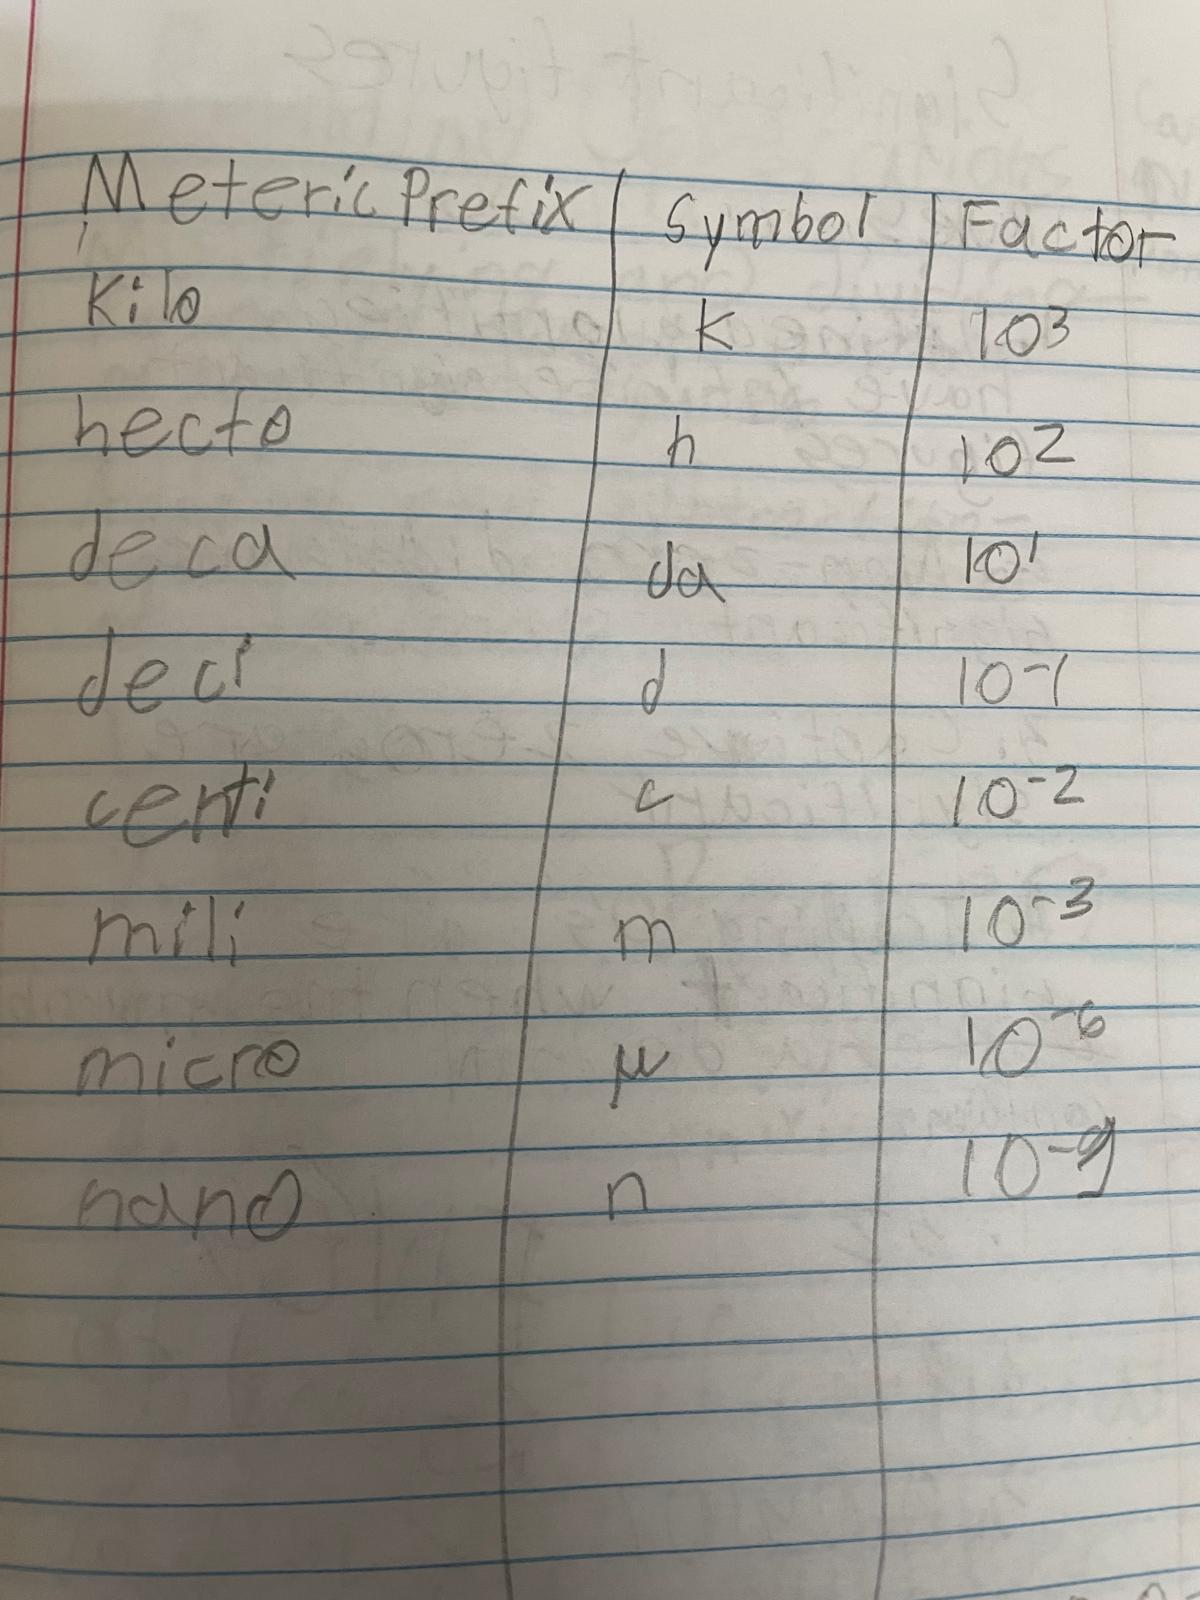 Meteric Prefix | Symbol | Factor
Kilo | k | 10³
hecto | h | 10²
deca | da | 10¹
deci | d | 10⁻¹
centi | c | 10⁻²
mili | m | 10⁻³
micro | μ | 10⁻⁶
nano | n | 10⁻⁹